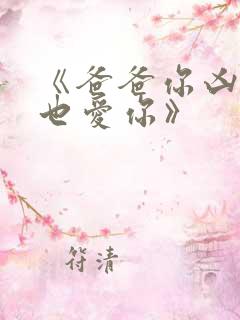 《爸爸你凶
也愛你》
符清